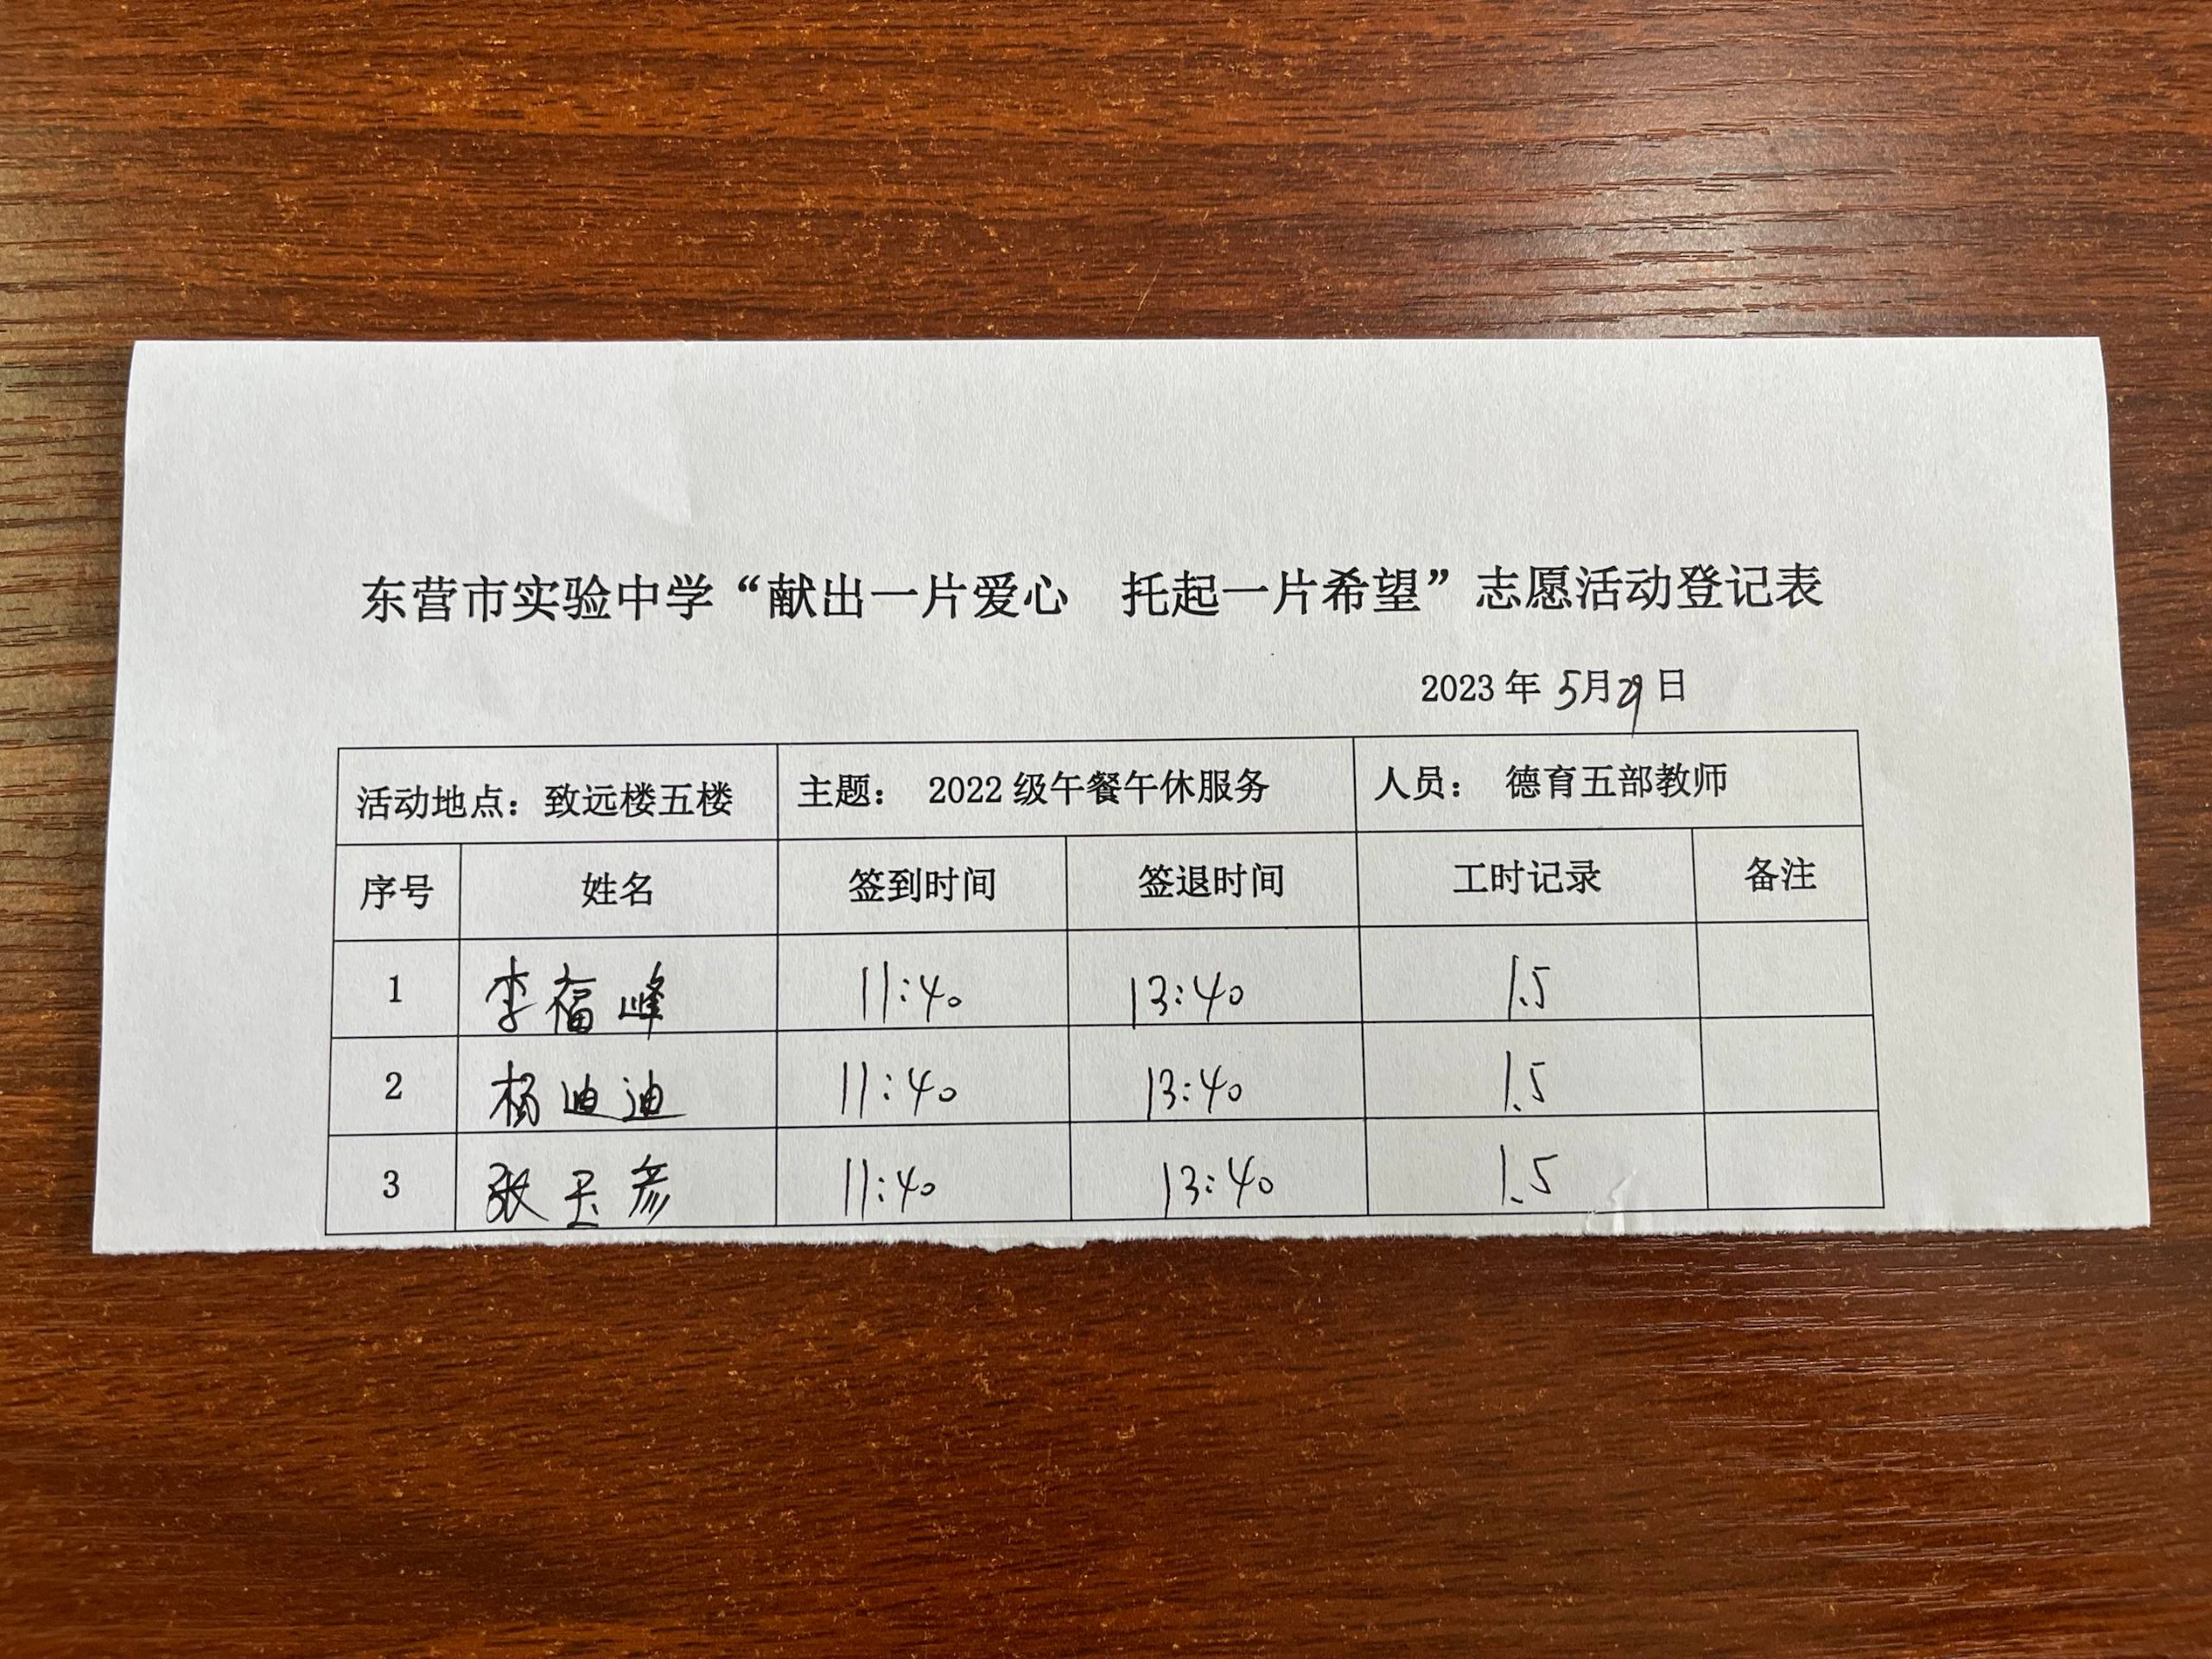 东营市实验中学“献出一片爱心 托起一片希望”志愿活动登记表
2023 年 5月29日
活动地点：致远楼五楼 主题： 2022 级午餐午休服务 人员： 德育五部教师
序号 姓名 签到时间 签退时间 工时记录 备注
1 李福峰 11:40 13:40 1.5
2 杨迪迪 11:40 13:40 1.5
3 张玉彦 11:40 13:40 1.5